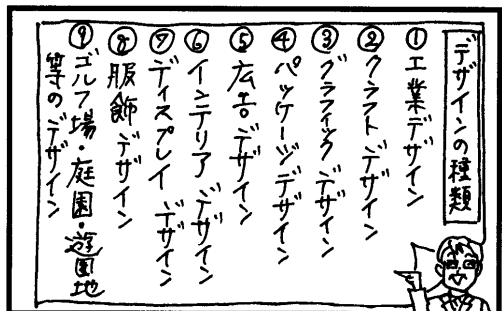 デザインの種類
①工業デザイン
②クラフトデザイン
③グラフィックデザイン
④パッケージデザイン
⑤広告デザイン
⑥インテリアデザイン
⑦ディスプレイデザイン
⑧服飾デザイン
⑨ゴルフ場・庭園・遊園地
等のデザイン